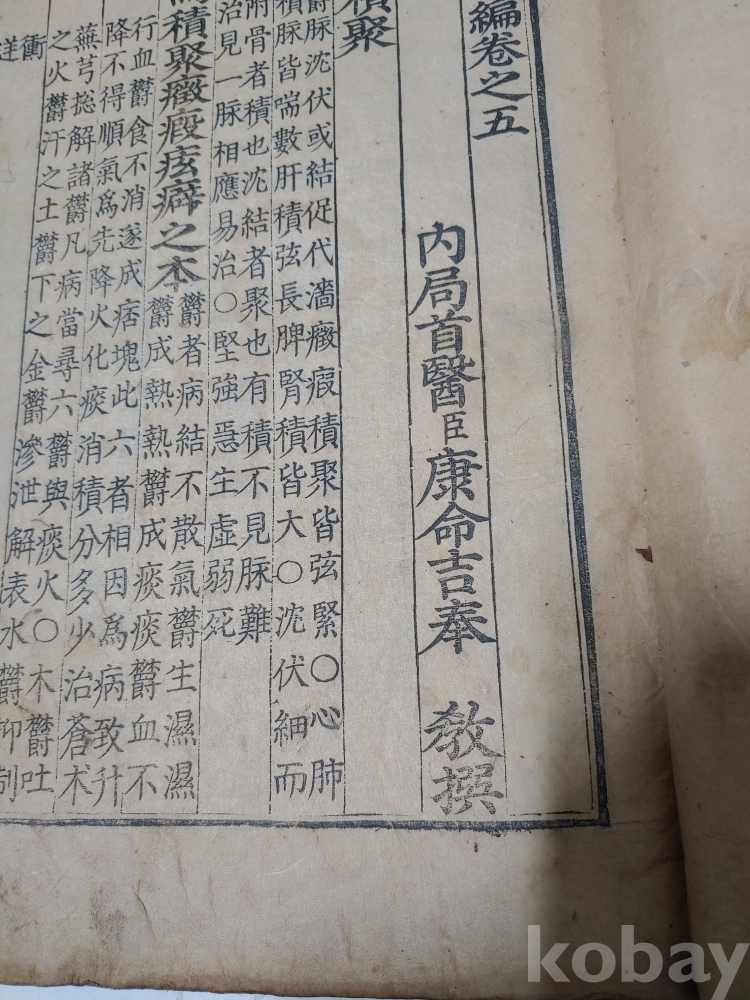 編卷之五
內局首醫臣康命吉奉 敎撰
積聚
欝脉沈伏或結促代濇癥瘕積聚皆弦緊○心肺
積脉皆喘數肝積弦長脾腎積皆大○沈伏細而
附骨者積也沈結者聚也有積不見脉難
治見一脉相應易治○堅強急生虛弱死
積聚癥瘕痃癖之本
欝者病結不散氣欝生濕濕
欝成熱熱欝成痰痰欝血不
行血欝食不消遂成痞塊此六者相因爲病致升
降不得順氣爲先降火化痰消積分多少治蒼术
蕪芎捴解諸欝凡病當尋六欝與痰火○木欝吐
之火欝汗之土欝下之金欝滲泄解表水欝抑制
衝
kobay